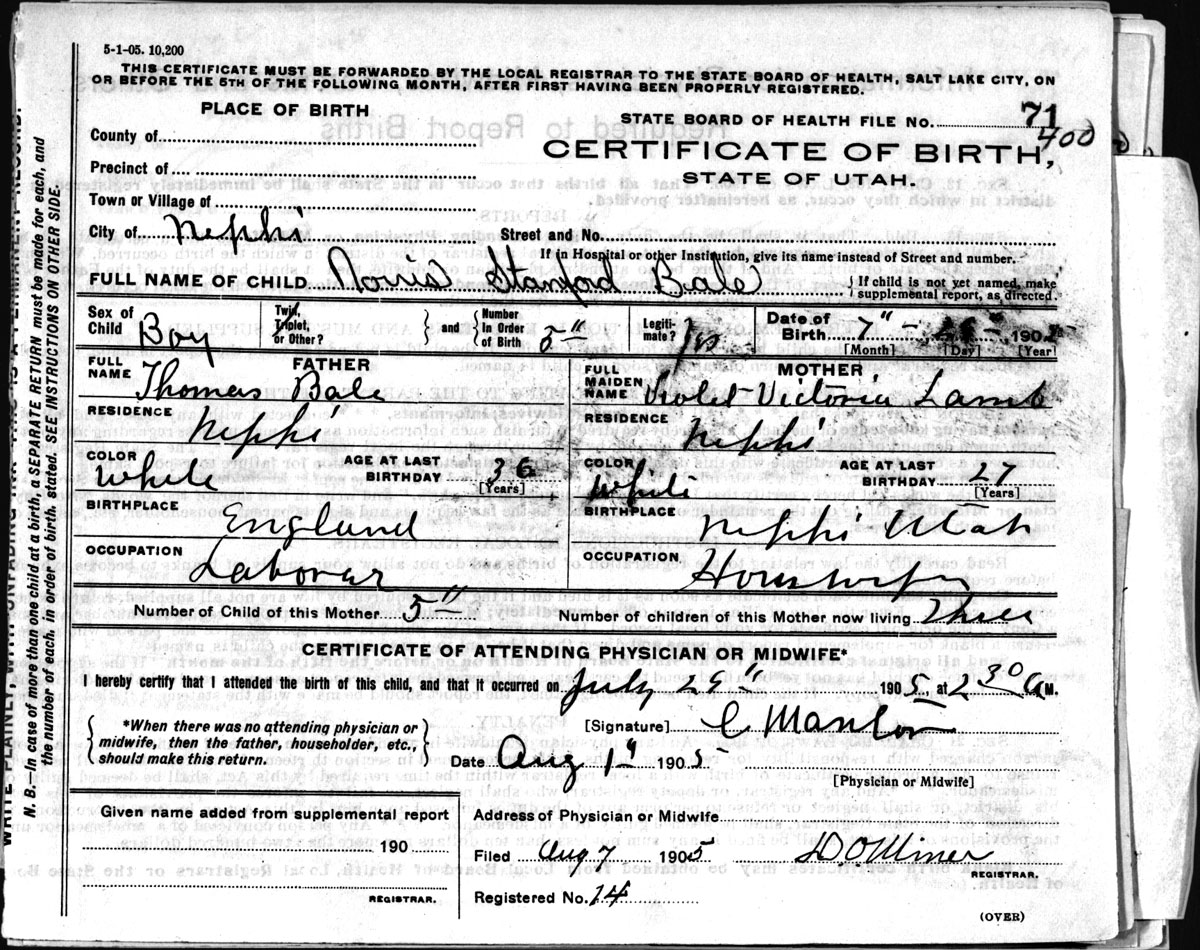 5-1-05. 10,200
THIS CERTIFICATE MUST BE FORWARDED BY THE LOCAL REGISTRAR TO THE STATE BOARD OF HEALTH, SALT LAKE CITY, ON
OR BEFORE THE 5TH OF THE FOLLOWING MONTH, AFTER FIRST HAVING BEEN PROPERLY REGISTERED.
PLACE OF BIRTH
STATE BOARD OF HEALTH FILE No. 71
400
County of
CERTIFICATE OF BIRTH,
Precinct of
STATE OF UTAH.
Town or Village of
City of Nephi Street and No.
If in Hospital or other Institution, give its name instead of Street and number.
FULL NAME OF CHILD Norris Stanford Bale { If child is not yet named, make
supplemental report, as directed.
Sex of Child Boy Twin, Triplet, or Other? } and { Number In Order of Birth 5" Legiti-mate? yes Date of Birth 7" 190
[Month] [Day] [Year]
FATHER
FULL NAME Thomas Bale
MOTHER
FULL MAIDEN NAME Violet Victoria Lamb
RESIDENCE Nephi
RESIDENCE Nephi
COLOR White AGE AT LAST BIRTHDAY 36 [Years]
COLOR White AGE AT LAST BIRTHDAY 27 [Years]
BIRTHPLACE England
BIRTHPLACE Nephi Utah
OCCUPATION Laborar
OCCUPATION Housewife
Number of Child of this Mother 5" Number of children of this Mother now living Three
CERTIFICATE OF ATTENDING PHYSICIAN OR MIDWIFE*
I hereby certify that I attended the birth of this child, and that it occurred on July " 1905, at 2 30 A M.
{ *When there was no attending physician or
midwife, then the father, householder, etc.,
should make this return. }
[Signature] C
Date Aug 1" 1905
[Physician or Midwife]
Given name added from supplemental report
190
REGISTRAR.
Address of Physician or Midwife
Filed Aug 7 1905 Miner
REGISTRAR.
Registered No. 14
(OVER)
N. B.—In case of more than one child at a birth, a SEPARATE RETURN must be made for each, and
the number of each, in order of birth, stated. SEE INSTRUCTIONS ON OTHER SIDE.